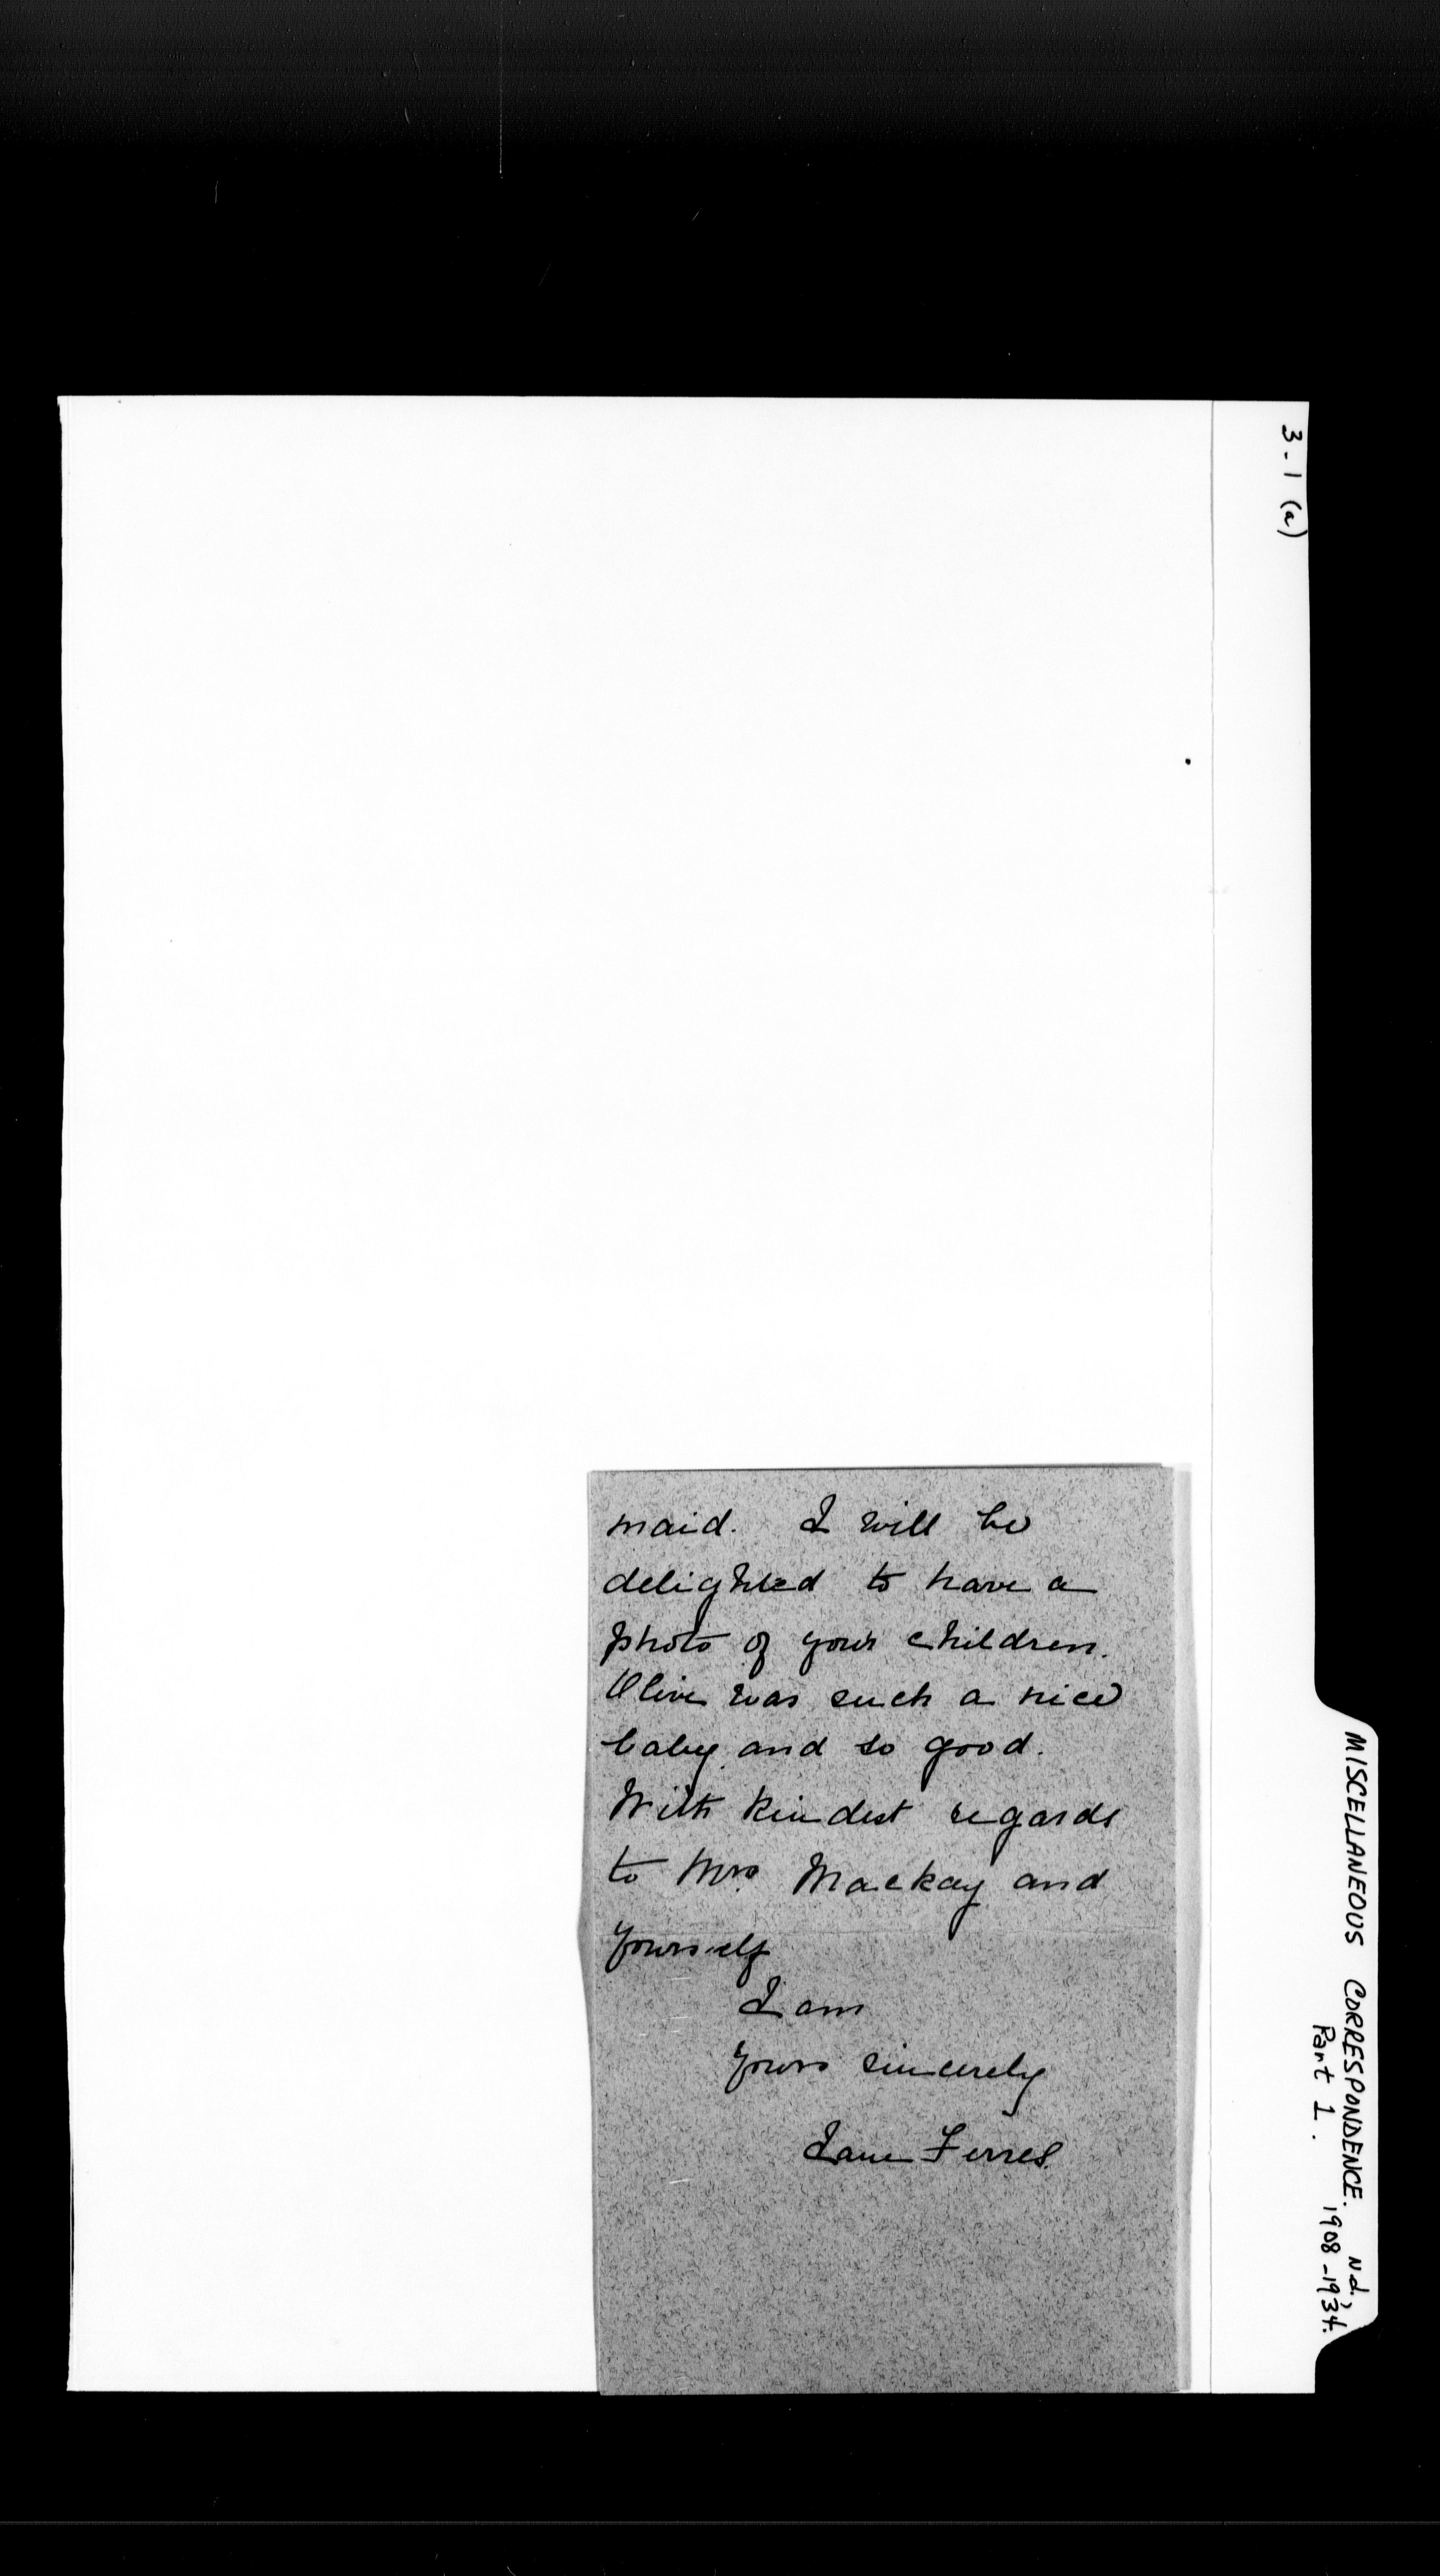 3-1 (a)
maid. I will be
delighted to have a
photo of your children.
Olive was such a nice
baby and so good.
With kindest regards
to Mrs. Mackay and
yourself
I am
yours sincerely
Jane Ferres.
MISCELLANEOUS CORRESPONDENCE. N.d.,
Part 1. 1908-1934.